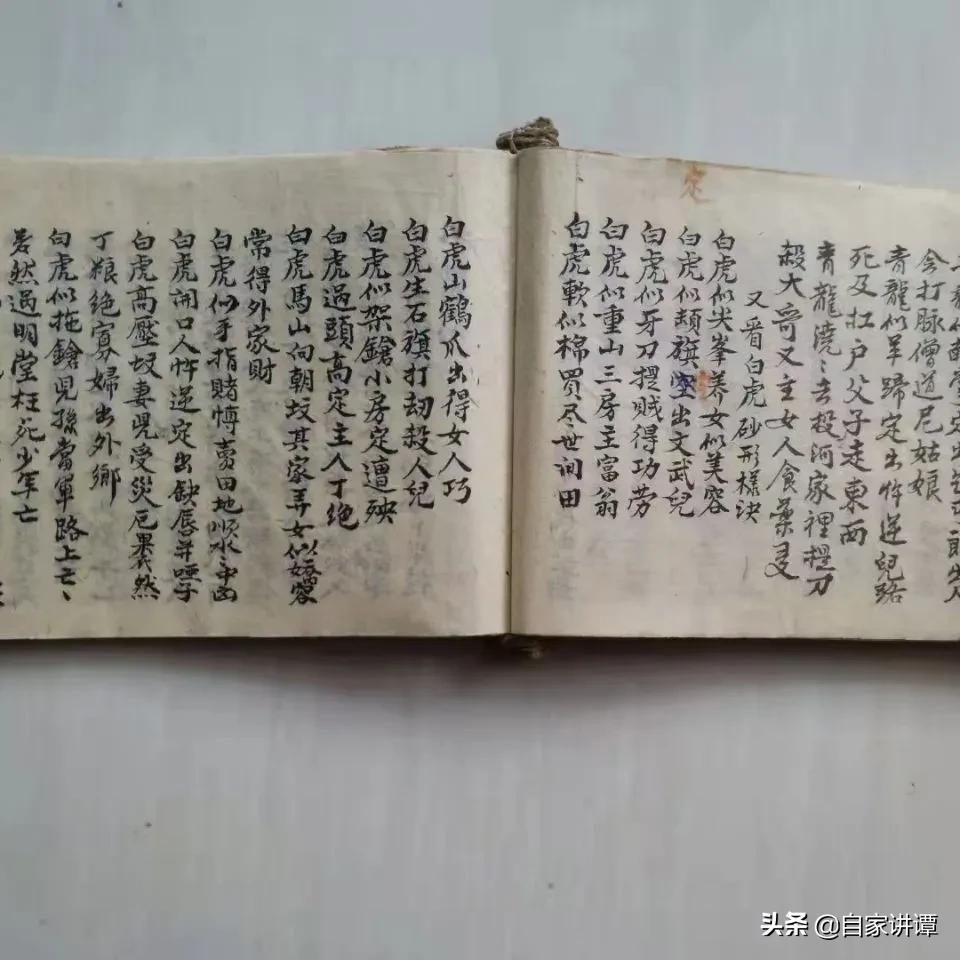 定
会打脉僧道尼姑娘
青龍似羊蹄定出忤逆兒路
死及扛户父子走東西
青龍澆〻去投河家裡提刀
殺大哥又主女人食藥
又看白虎砂形樣决
白虎似尖峯養女似美容
白虎似頓旗定出文武兒
白虎似牙刀提賊得功劳
白虎似重山三房主富翁
白虎軟似棉買尽世间田
白虎山鶴爪出得女人巧
白虎生石旗打劫殺人兒
白虎似架鎗小房定遭殃
白虎過頭高定主人丁絶
白虎馬山向朝坟其家弄女似
常得外家財
白虎似手指賭博賣田地順水
白虎開口人忤逆定出缺唇并哑子
白虎高壓坟妻児受災厄果不然
丁粮绝寡婦出外鄉
白虎似拖鎗児孫當軍路上亡〻
若然過明堂枉死少年亡
头条 @自家讲谭